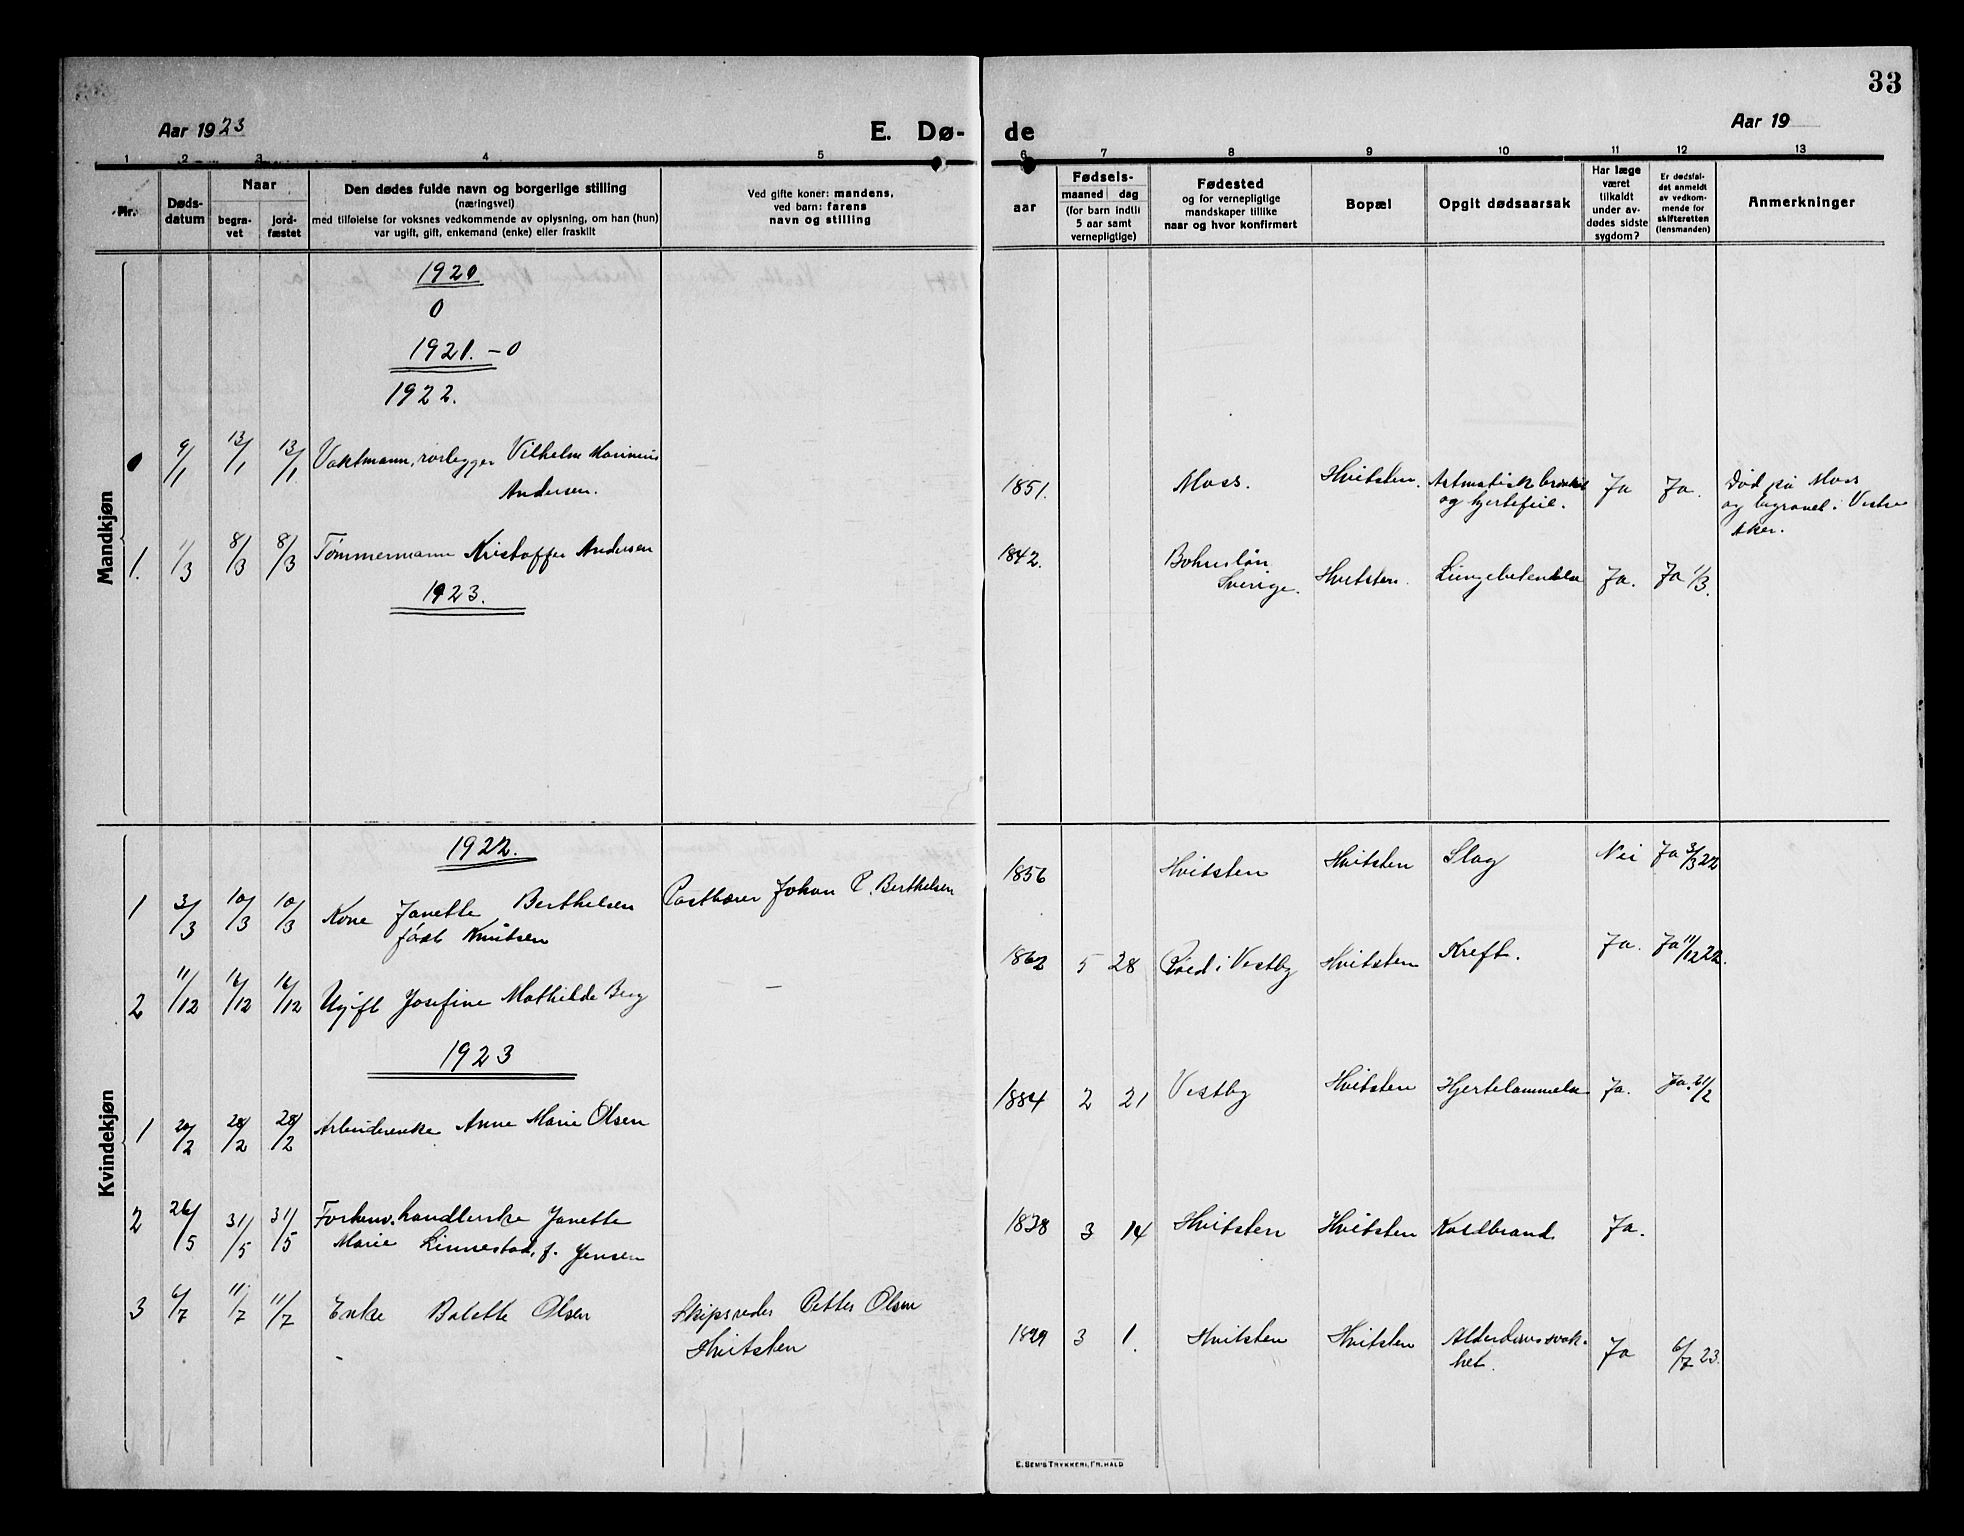 33
Aar 1923
E. Dø-
de
Aar 19
1 2 3 4 5 6 7 8 9 10 11 12 13
Nr.
Døds-
datum
Naar
begra-
vet
jord-
fæstet
Den dødes fulde navn og borgerlige stilling
(næringsvei)
med tilføielse for voksnes vedkommende av oplysning, om han (hun)
var ugift, gift, enkemand (enke) eller fraskilt
Ved gifte koner: mandens,
ved barn: farens
navn og stilling
aar
Fødsels-
maaned dag
(for barn indtil
5 aar samt
vernepligtige)
Fødested
og for vernepligtige
mandskaper tillike
naar og hvor konfirmert
Bopæl
Opgit dødsaarsak
Har læge
været
tilkaldt
under av-
dødes sidste
sygdom?
Er dødsfal-
det anmeldt
av vedkom-
mende for
skifteretten
(lensmanden)
Anmerkninger
Mandkjøn
1920
0
1921. - 0
1922.
9/1 13/1 13/1 Vaktmann, rørlegger Vilhelm Marinius
Andersen.
1851. Moss. Hvitsten. Astmatisk
og hjertefeil. Ja Ja. Død på Moss
og begravet i Vestre
Aker.
1. 1/3 8/3 8/3 Tømmermann Kristoffer Andersen
1842. Bohuslän
Sverige. Hvitsten. Lungebetendelse Ja. Ja 1/3.
1923.
Kvindekjøn
1922.
1 3/3 10/3 10/3 Kone Janette Berthelsen
født Knutsen
Postbærer Johan P. Berthelsen
1856 Hvitsten Hvitsten Slag Nei Ja 3/3 22
2 11/12 16/12 16/12 Ugift Josefine Mathilde Berg
— —
1862 5 28 Røed i Vestby Hvitsten Kreft. Ja. Ja 11/12 22.
1923
1 20/2 28/2 28/2 Arbeiderenke Anne Marie Olsen
1884 2 21 Vestby Hvitsten Hjertelammelse Ja. Ja. 21/2
2 26/5 31/5 31/5 Forhenv. handlerske Janette
Marie Linnestad, f. Jensen
1838 3 14 Hvitsten Hvitsten Koldbrand Ja.
3 6/7 11/7 11/7 Enke Bolette Olsen
Skipsreder Petter Olsen
Hvitsten
1849 3 1. Hvitsten Hvitsten Alderdomssvak-
het. Ja 6/7 23.
E. SEM'S TRYKKERI, FR.HALD